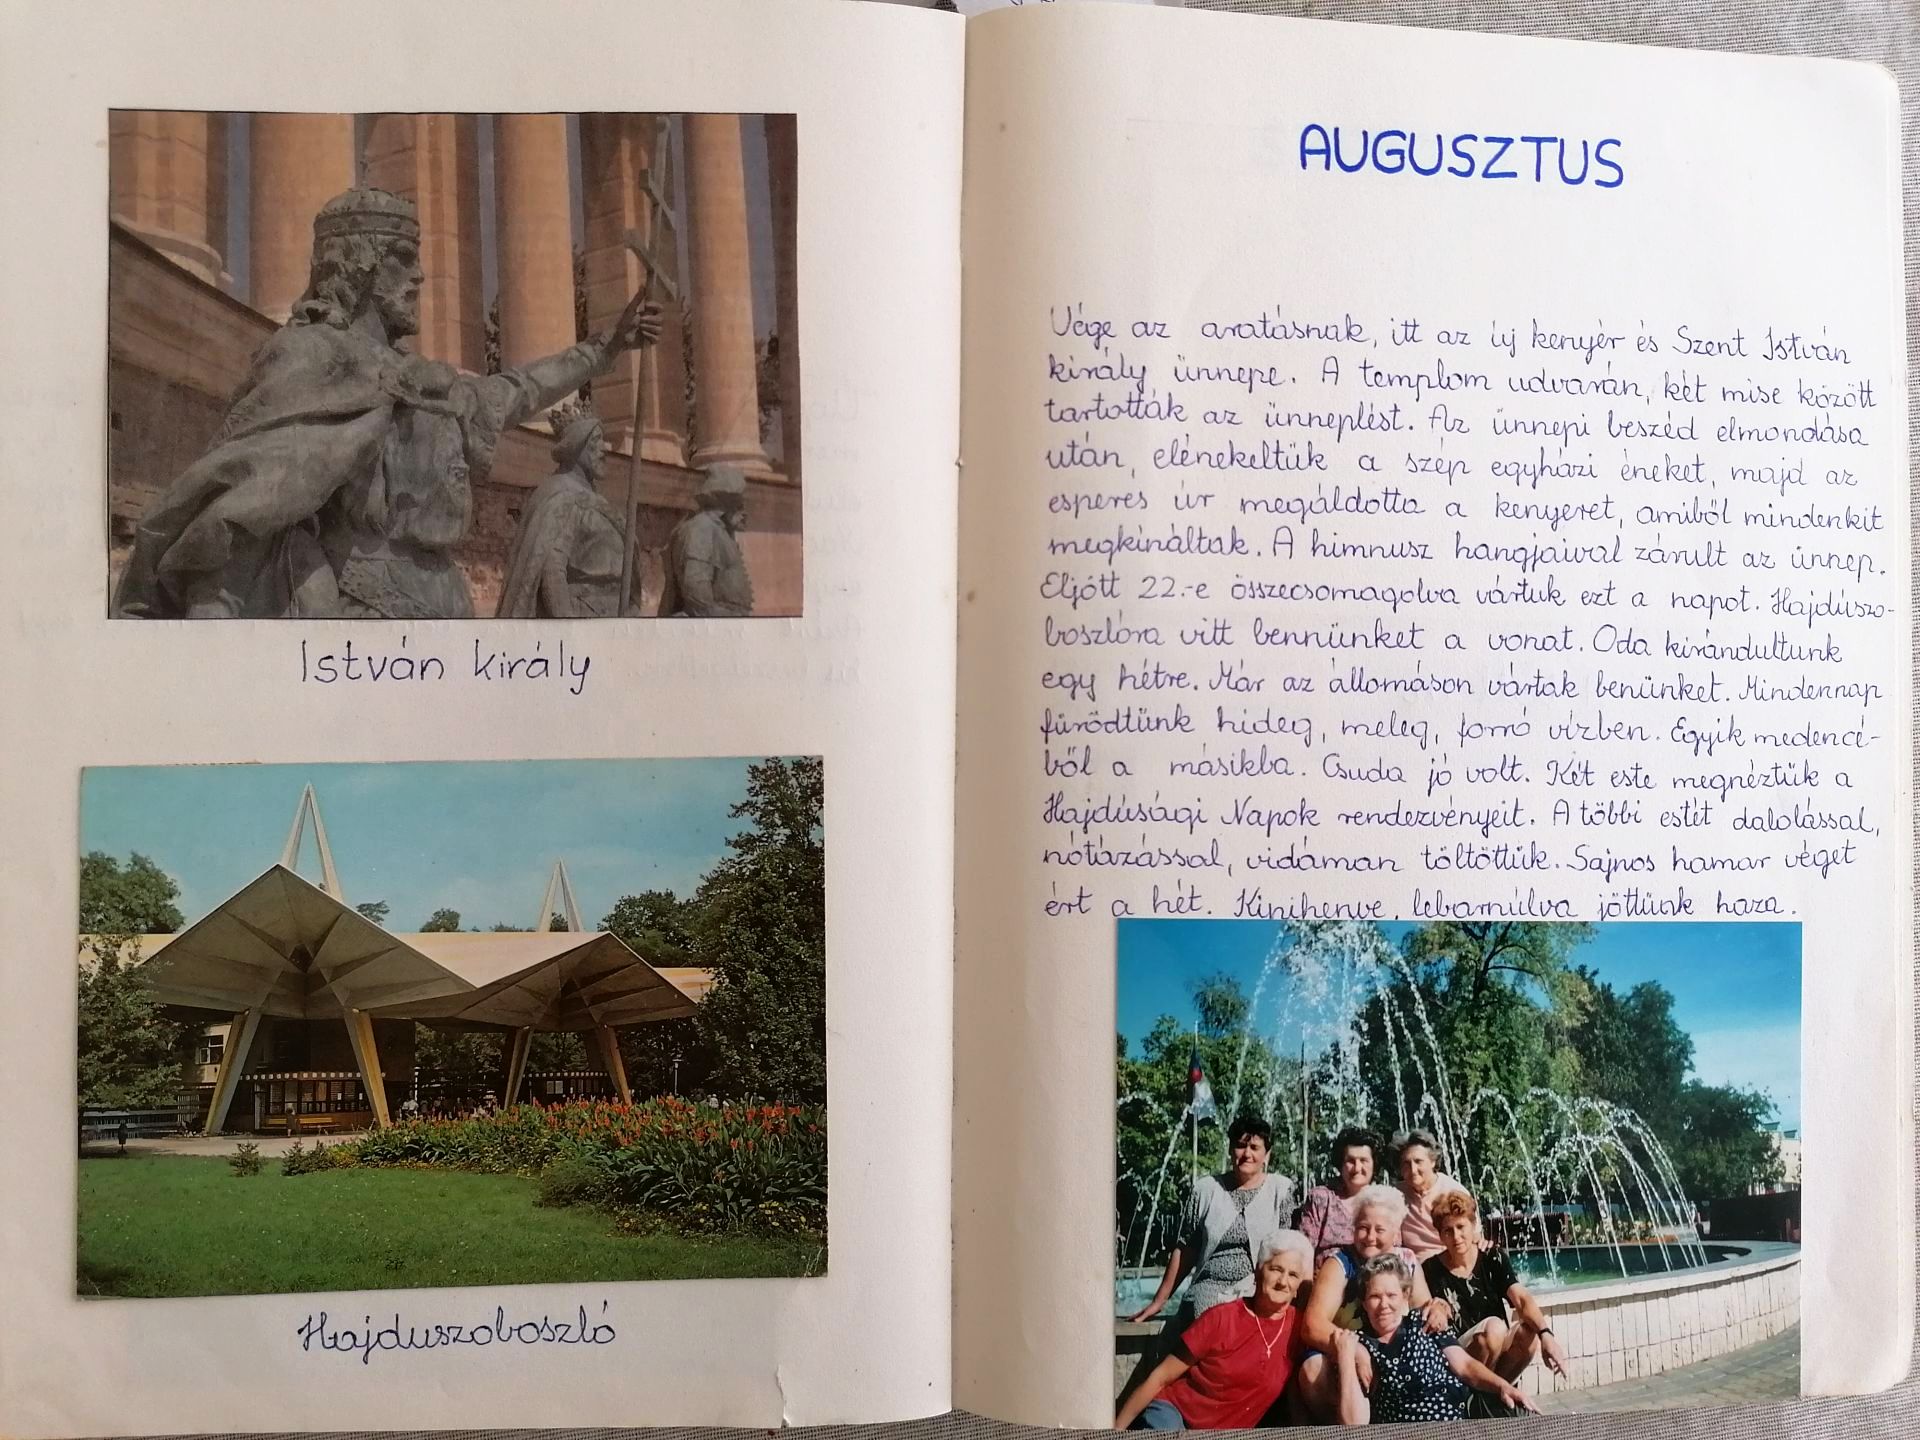 István király
Hajduszoboszló
AUGUSZTUS
Vége az aratásnak, itt az új kenyér és Szent István
király ünnepe. A templom udvarán, két mise között
tartották az ünneplést. Az ünnepi beszéd elmondása
után, elénekeltük a szép egyházi éneket, majd az
esperes úr megáldotta a kenyeret, amiből mindenkit
megkínáltak. A himnusz hangjaival zárult az ünnep.
Eljött 22.-e összecsomagolva vártuk ezt a napot. Hajdúszo-
boszlóra vitt bennünket a vonat. Oda kirándultunk
egy hétre. Már az állomáson vártak benünket. Mindennap
fürödtünk hideg, meleg, forró vízben. Egyik medencé-
ből a másikba. Csuda jó volt. Két este megnéztük a
Hajdúsági Napok rendezvényeit. A többi estét dalolással,
nótázással, vidáman töltöttük. Sajnos hamar véget
ért a hét. Kipihenve, lebarnúlva jöttünk haza.